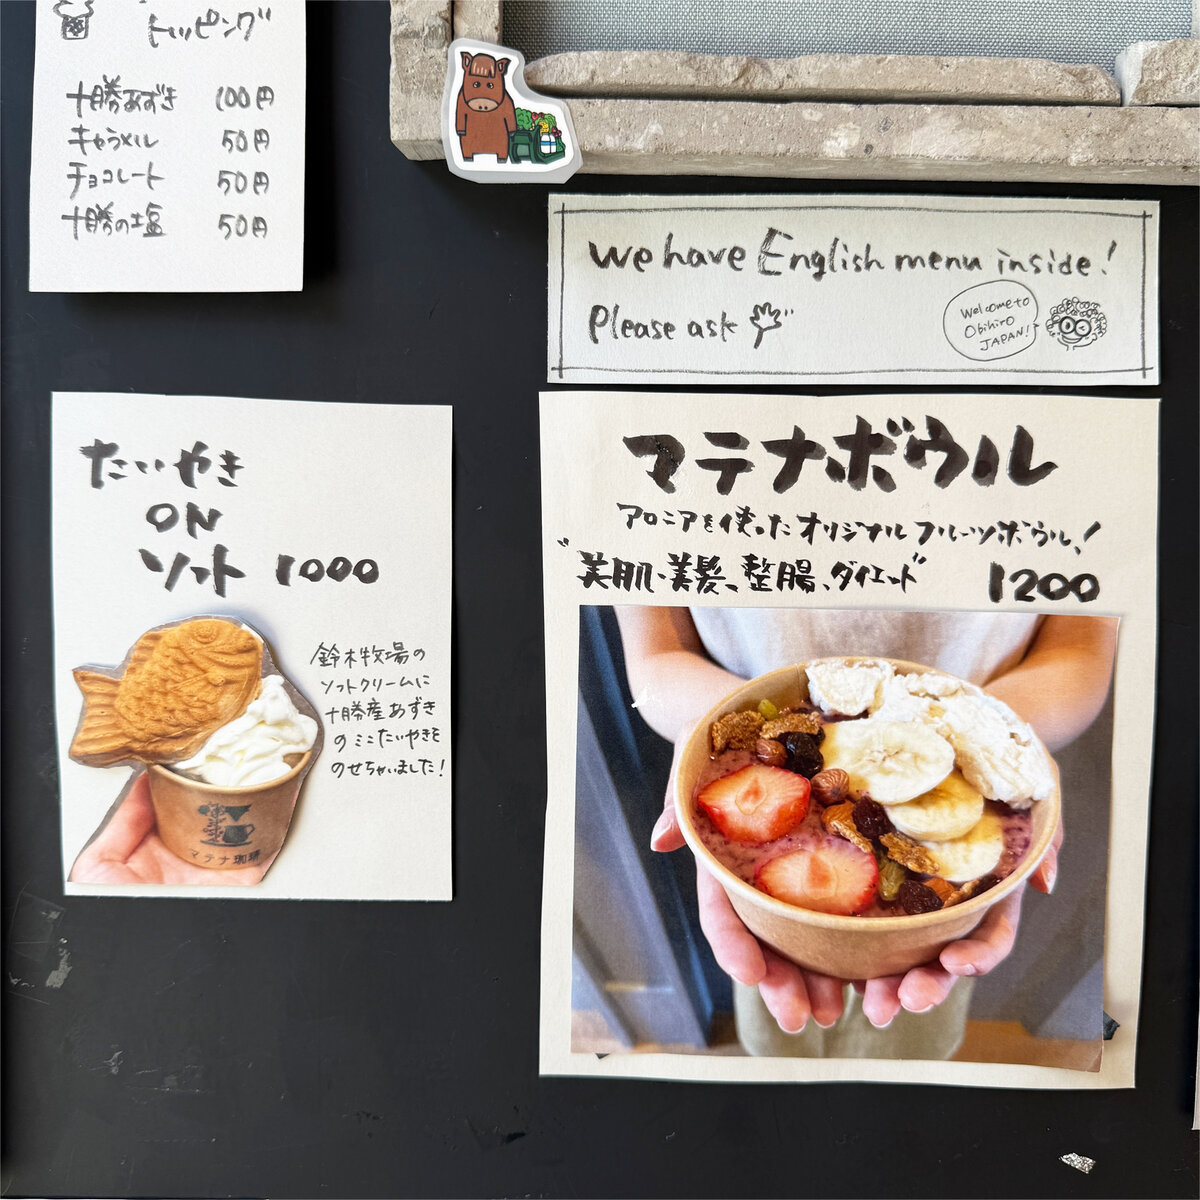 トッピング
十勝あずき 100円
キャラメル 50円
チョコレート 50円
十勝の塩 50円
We have English menu inside!
Please ask
Welcome to
Obihiro
JAPAN!
たいやき
ON
ソフト 1000
鈴木牧場の
ソフトクリームに
十勝産あずき
のミニたいやきを
のせちゃいました!
マテナ珈琲
マテナボウル
アロニアを使ったオリジナルフルーツボウル!
"美肌・美髪、整腸、ダイエット" 1200